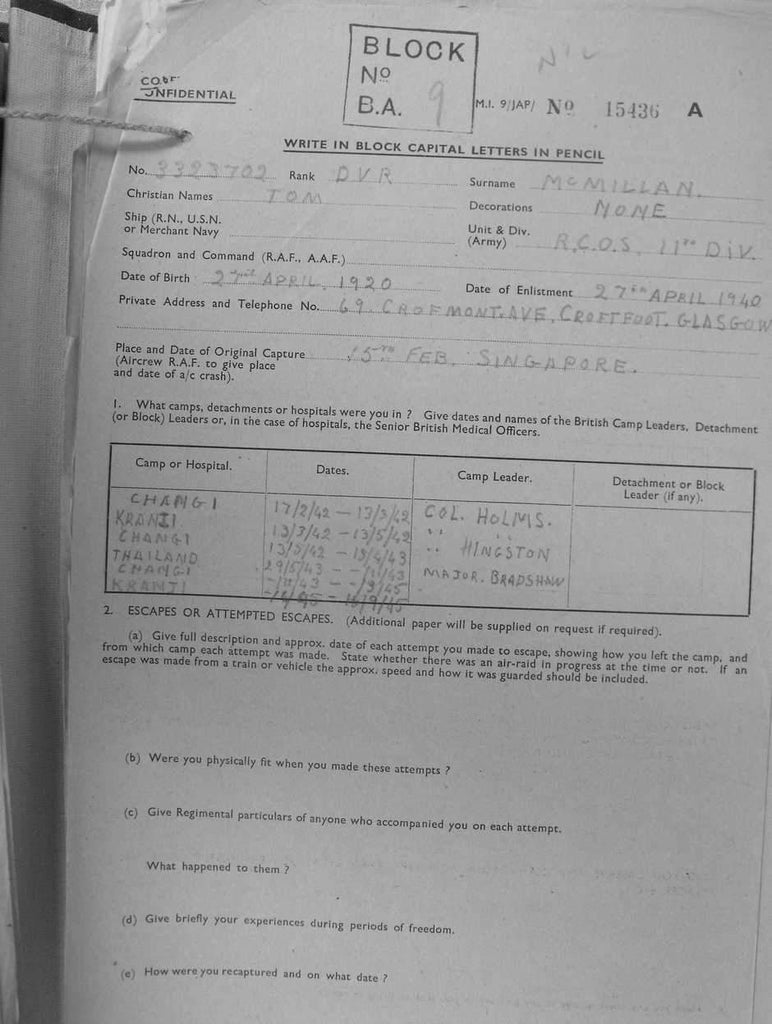 BLOCK
No
B.A. 9
NIL
CONFIDENTIAL
M.I. 9/JAP/ No 15436 A
WRITE IN BLOCK CAPITAL LETTERS IN PENCIL
No. 3323702 Rank DVR Surname McMILLAN.
Christian Names TOM Decorations NONE
Ship (R.N., U.S.N.
or Merchant Navy
Unit & Div.
(Army) R.C.O.S. 11TH DIV.
Squadron and Command (R.A.F., A.A.F.)
Date of Birth 27TH APRIL, 1920 Date of Enlistment 27TH APRIL 1940
Private Address and Telephone No. 69, CROFMONT AVE, CROFTFOOT, GLASGOW
Place and Date of Original Capture 15TH FEB. SINGAPORE.
(Aircrew R.A.F. to give place
and date of a/c crash).
1. What camps, detachments or hospitals were you in ? Give dates and names of the British Camp Leaders, Detachment
(or Block) Leaders or, in the case of hospitals, the Senior British Medical Officers.
Camp or Hospital. Dates. Camp Leader. Detachment or Block
Leader (if any).
CHANGI 17/2/42 — 13/3/42 COL. HOLMS.
KRANJI 13/3/42 — 13/5/42 " "
CHANGI 13/5/42 — 18/4/43 " HINGSTON
THAILAND 29/5/43 — MAJOR. BRADSHAW
CHANGI
KRANJI
2. ESCAPES OR ATTEMPTED ESCAPES. (Additional paper will be supplied on request if required).
(a) Give full description and approx. date of each attempt you made to escape, showing how you left the camp, and
from which camp each attempt was made. State whether there was an air-raid in progress at the time or not. If an
escape was made from a train or vehicle the approx. speed and how it was guarded should be included.
(b) Were you physically fit when you made these attempts ?
(c) Give Regimental particulars of anyone who accompanied you on each attempt.
What happened to them ?
(d) Give briefly your experiences during periods of freedom.
(e) How were you recaptured and on what date ?